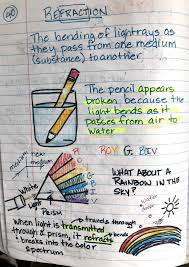 REFRACTION
The bending of lightrays as
they pass from one medium
(substance) to another
The pencil appears
broken because the
light bends as it
passes from air to
water
ROY G. BIV
medium
new medium
White
Light
PRISM
WHAT ABOUT A
RAINBOW IN THE
SKY?
When light is transmitted
travels through
through a prism, it refracts
bends
& breaks into the color
spectrum